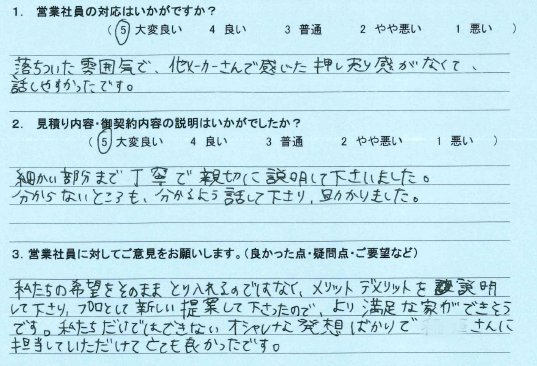 1. 営業社員の対応はいかがですか？
（ 5 大変良い 4 良い 3 普通 2 やや悪い 1 悪い ）
落ちついた雰囲気で、他メーカーさんで感じた押し売り感がなくて、
話しやすかったです。
2. 見積り内容・御契約内容の説明はいかがでしたか？
（ 5 大変良い 4 良い 3 普通 2 やや悪い 1 悪い ）
細かい部分まで丁寧で親切に説明して下さいました。
分からないところも、分かるよう話して下さり、助かりました。
3. 営業社員に対してご意見をお願いします。（良かった点・疑問点・ご要望など）
私たちの希望をそのままとり入れるのではなく、メリットデメリットを説明
して下さり、プロとして新しい提案して下さったので、より満足な家ができそう
です。私たちだけではできないオシャレな発想ばかりで さんに
担当していただけてとても良かったです。